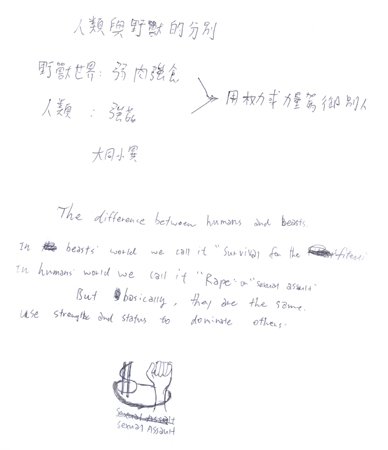 人類與野獸的分別
野獸世界: 弱肉強食
人類 : 強姦
用权力或力量駕御別人
大同小異
The difference between humans and beasts.
In beasts' world we call it "Survival for the fittest"
In humans' world we call it "Rape" or "sexual assault"
But basically, they are the same.
use strengths and status to dominate others.
Sexual Assault
Sexual Assault